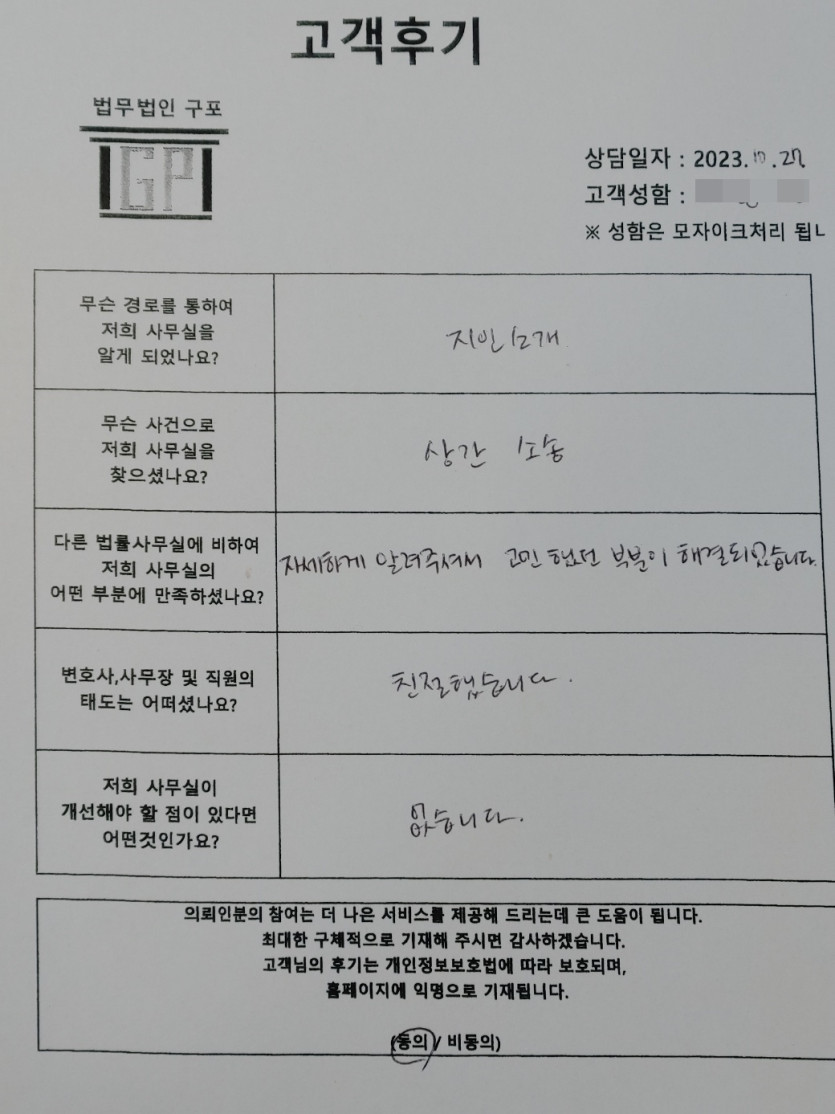 고객후기
법무법인 구포
GP
상담일자 : 2023.10.27
고객성함 :
※ 성함은 모자이크처리 됩ㄴ
무슨 경로를 통하여
저희 사무실을
알게 되었나요?
지인소개
무슨 사건으로
저희 사무실을
찾으셨나요?
상간 소송
다른 법률사무실에 비하여
저희 사무실의
어떤 부분에 만족하셨나요?
자세하게 알려주셔서 고민 했던 부분이 해결되었습니다.
변호사,사무장 및 직원의
태도는 어떠셨나요?
친절했습니다.
저희 사무실이
개선해야 할 점이 있다면
어떤것인가요?
없습니다.
의뢰인분의 참여는 더 나은 서비스를 제공해 드리는데 큰 도움이 됩니다.
최대한 구체적으로 기재해 주시면 감사하겠습니다.
고객님의 후기는 개인정보보호법에 따라 보호되며,
홈페이지에 익명으로 기재됩니다.
(동의 / 비동의)